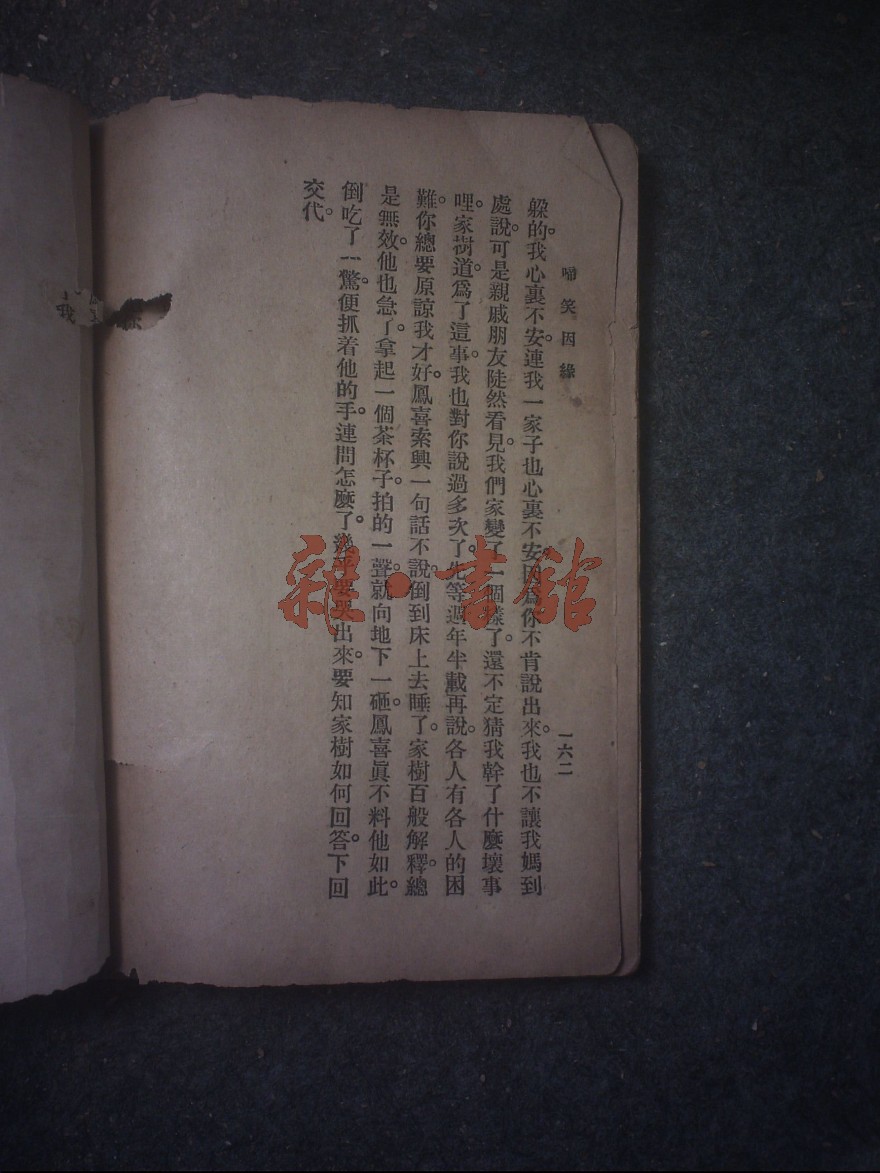 啼笑因緣
一六二
躱的。我心裏不安。連我一家子也心裏不安。因爲你不肯說出來。我也不讓我媽到
處說。可是親戚朋友陡然看見。我們家變了一個樣了。還不定猜我幹了什麼壞事
哩。家樹道。爲了這事。我也對你說過多次了。先等週年半載再說。各人有各人的困
難。你總要原諒我才好。鳳喜索興一句話不說。倒到床上去睡了。家樹百般解釋。總
是無效。他也急了。拿起一個茶杯子。拍的一聲。就向地下一砸。鳳喜眞不料他如此。
倒吃了一驚。便抓着他的手。連問怎麼了。幾乎要哭出來。要知家樹如何回答。下回
交代。
雜·書館
我